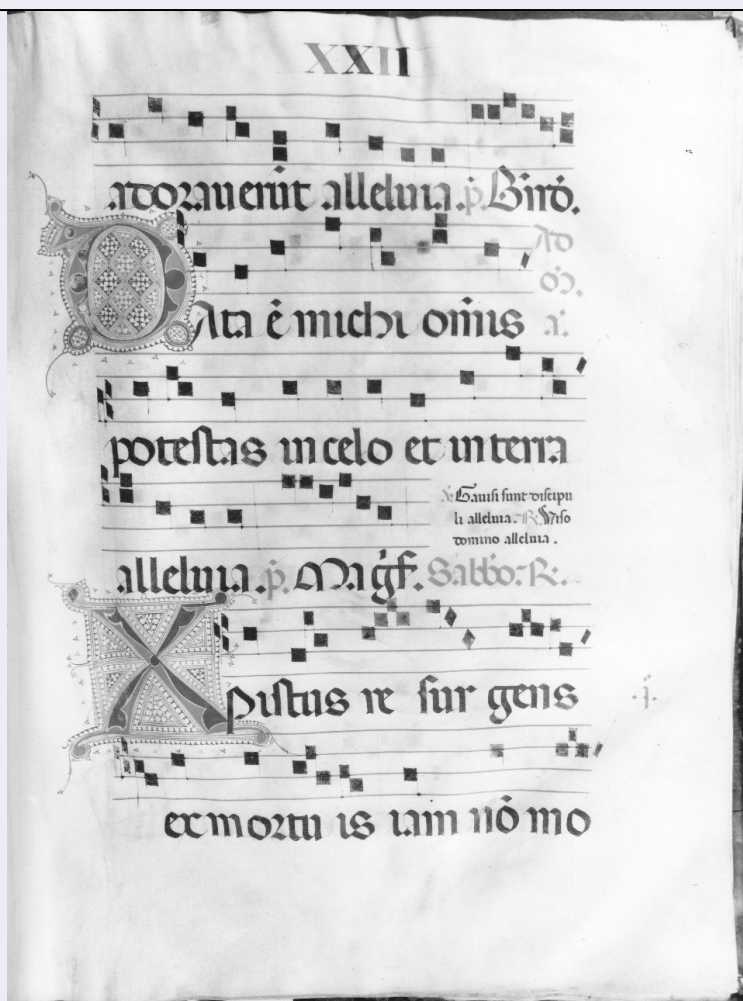 XXII
adorauerūt alleluia. p̄. Bn̄dō.
Ad
DAta ē michi om̄is a.
potestas in celo et in terra
Gauisi sunt discipu
li alleluia. R. Viso
domino alleluia.
alleluia. p̄. Magf̄. Sabbō. R.
Xpistus re sur gens
ex mortu is iam nō mo